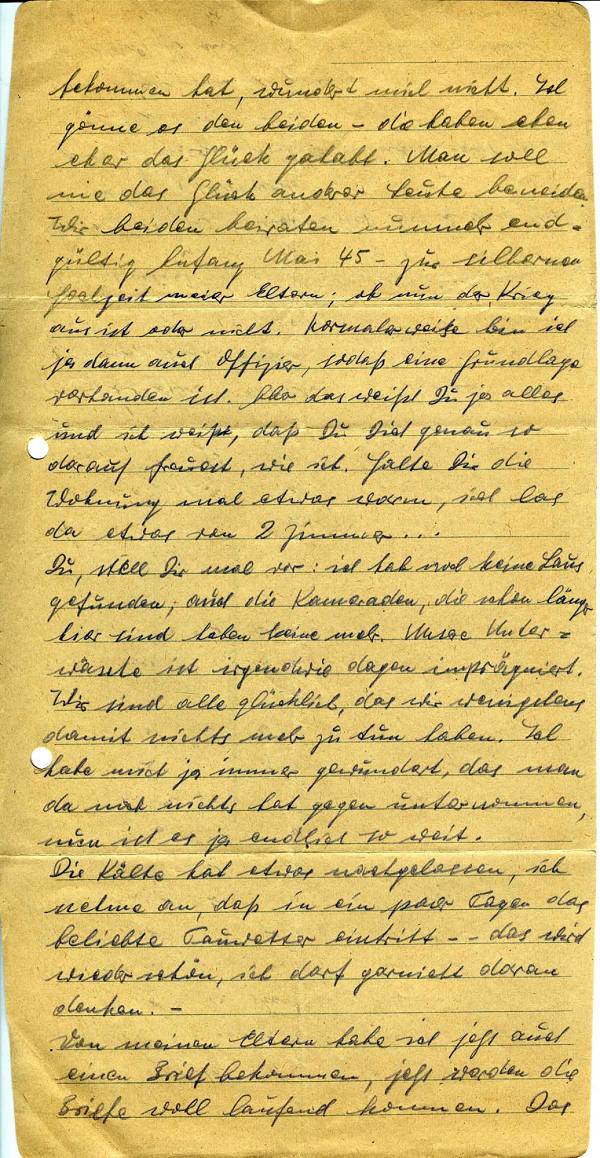 bekommen hat, wundert mich nicht. Ich
gönne es den beiden - die haben eben
eher das Glück gehabt. Man soll
nie das Glück anderer Leute beneiden.
Wir beiden heiraten nunmehr end=
gültig Anfang Mai 45 - zur silbernen
Hochzeit meier Eltern; ob nun der Krieg
aus ist oder nicht. Normalerweise bin ich
ja dann auch Offizier, sodaß eine Grundlage
vorhanden ist. Aber das weißt Du ja alles
und ich weiß, daß Du Dich genau so
darauf freust, wie ich. Halte Dir die
Wohnung mal etwas warm, ich las
da etwas von 2 Zimmer...
Du, stell Dir mal vor: ich hab noch keine Laus
gefunden; auch die Kameraden, die schon länger
hier sind haben keine mehr. Unsere Unter=
wäsche ist irgendwie dagen imprägniert.
Wir sind alle glücklich, das wir wenigstens
damit nichts mehr zu tun haben. Ich
habe mich ja immer gewundert, das man
da noch nichts hat gegen unternommen,
nun ist es ja endlich so weit.
Die Kälte hat etwas nachgelassen, ich
nehme an, daß in ein paar Tagen das
beliebte Tauwetter eintritt -- das wird
wieder schön, ich darf garnicht daran
denken. -
Von meinen Eltern habe ich jetzt auch
einen Brief bekommen, jetzt werden die
Briefe wohl laufend kommen. Das